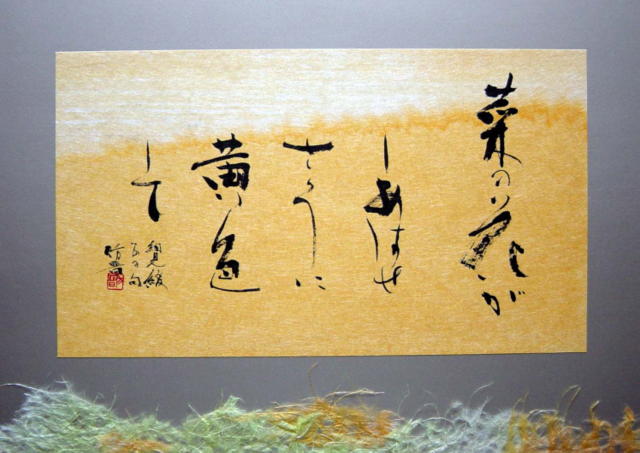 菜の花が
しあはせ
さうに
黄色
して
細見綾
子の句